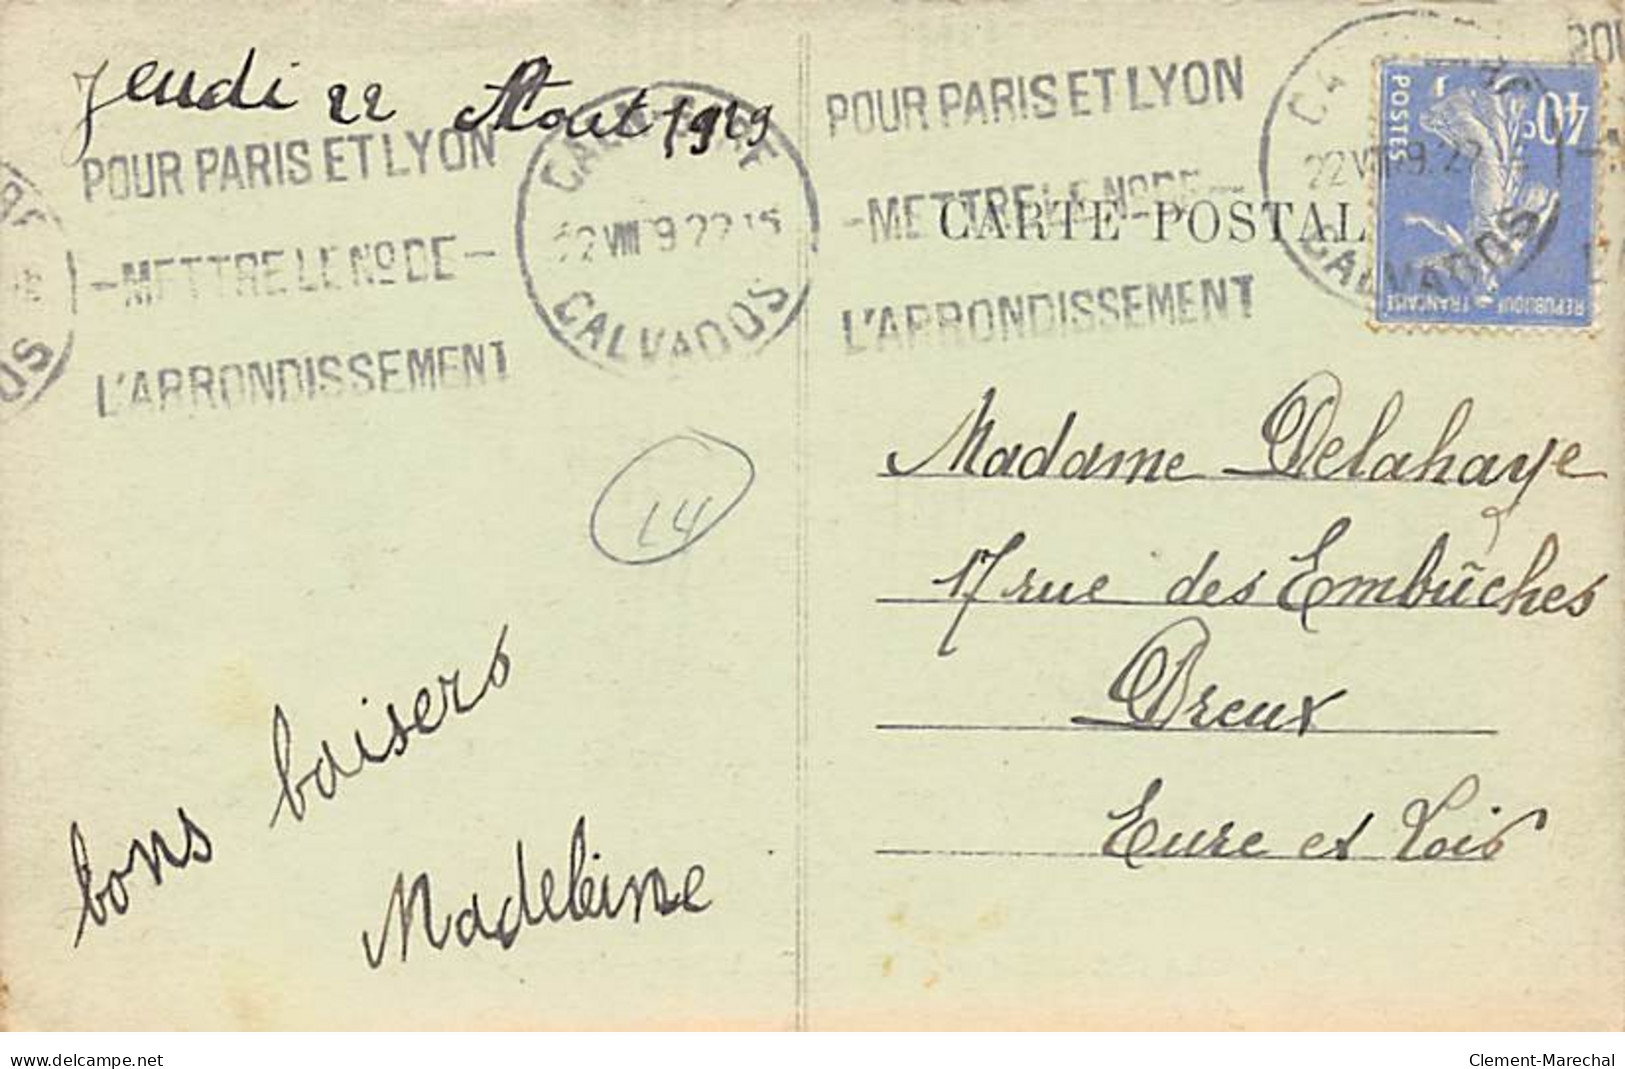 Jeudi 22 Août 1929
POUR PARIS ET LYON
-METTRE LE No DE-
L'ARRONDISSEMENT
CAEN-GARE
22 VIII 9 22 15
CALVADOS
14
bons baisers
Madeleine
POUR PARIS ET LYON
-METTRE LE No DE-
L'ARRONDISSEMENT
CARTE POSTAL
CALVADOS
POSTES
40c
REPUBLIQUE FRANÇAISE
Madame Delahaye
17 rue des Embûches
Dreux
Eure et Loir
www.delcampe.net
Clement-Marechal